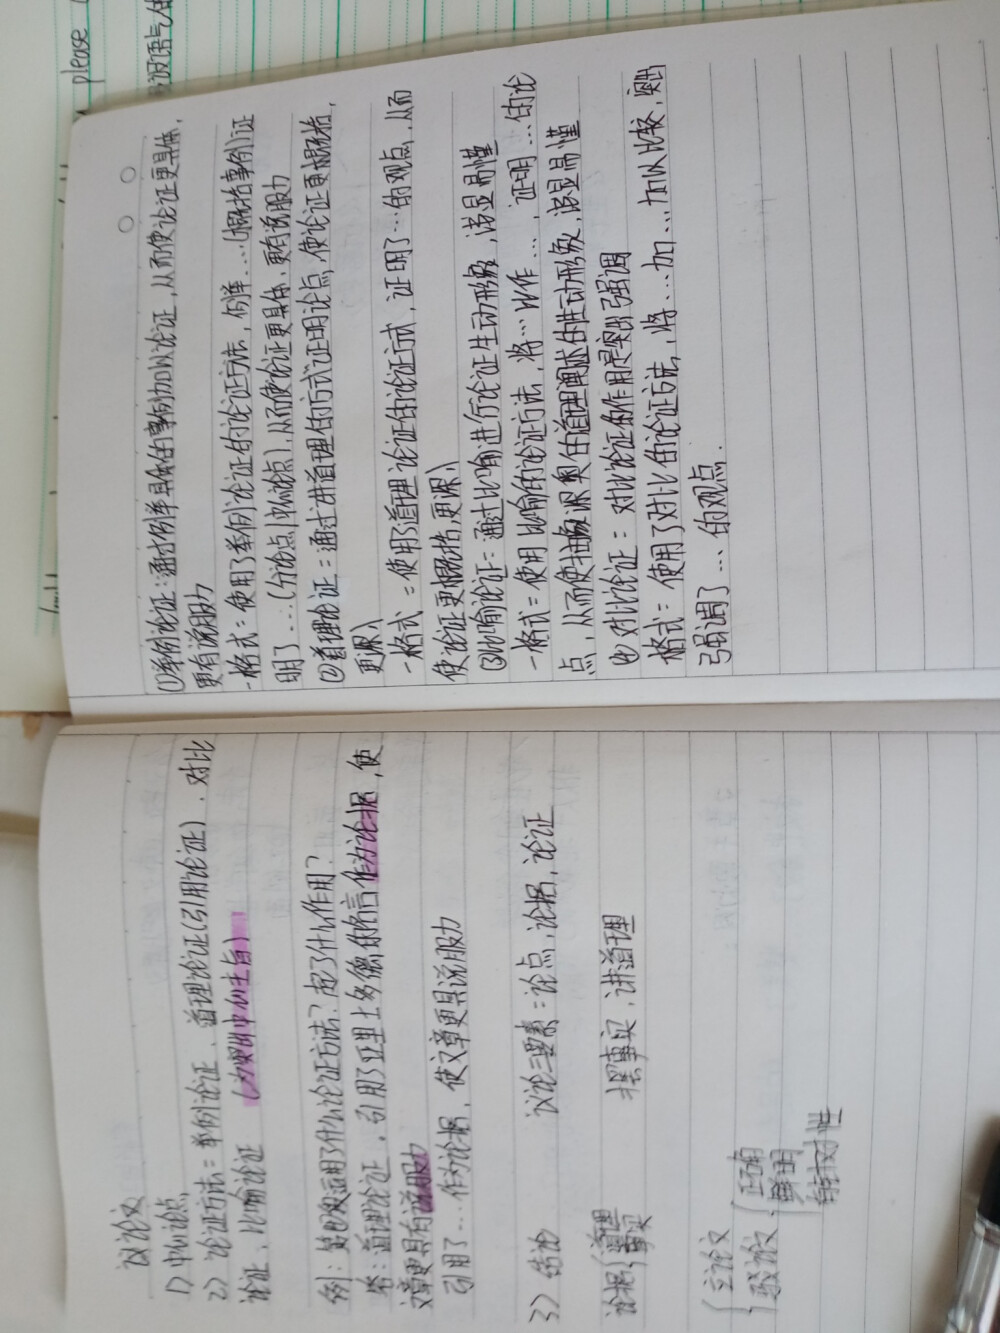 议论文
1> 中心论点
2> 论证方法=举例论证、道理论证(引用论证)、对比
论证、比喻论证 (为突出中心主旨)
例:第也段运用了什么论证方法?起了什么作用?
答:道理论证,引用了亚里士多德的名言作为论据,使
文章更具有说服力
引用了…作为论据,使文章更具说服力
3> 结论 议论三要素=论点,论据,论证
论据{道理 事实 摆事实,讲道理
{立论文
驳论文 {正确
鲜明
针对性
①举例论证:通过例举具体的事例加以论证,从而使论证更具体,
更有说服力
-格式=使用了举例论证的论证方法,例举…(概括事例)证
明了…(分论点/中心论点),从而使论证更具体,更有说服力
②道理论证=通过讲道理的方式证明论点,使论证更概括,
更深入
-格式=使用了道理论证的论证方式,证明了…的观点,从而
使论证更概括,更深入
③比喻论证=通过比喻进行论证生动形象,浅显易懂
-格式=使用比喻的论证方法,将…比作…,证明…的论
点,从而使抽象深奥的道理阐述的生动形象,浅显易懂
④对比论证=对比论证的作用是突出强调
格式=使用了对比的论证方法,将…加…加以比较,突出
强调了…的观点.
please